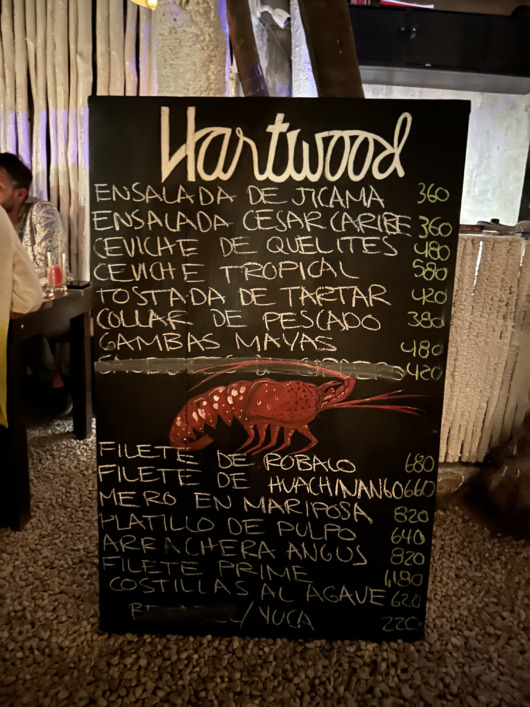 Hartwood
ENSALADA DE JICAMA 360
ENSALADA CESAR CARIBE 360
CEVICHE DE QUELITES 480
CEVICHE TROPICAL 580
TOSTADA DE TARTAR 420
COLLAR DE PESCADO 380
GAMBAS MAYAS 480
420
FILETE DE ROBALO 680
FILETE DE HUACHINANGO 660
MERO EN MARIPOSA 820
PLATILLO DE PULPO 640
ARRACHERA ANGUS 820
FILETE PRIME 1180
COSTILLAS AL AGAVE 620
/YUCA 220